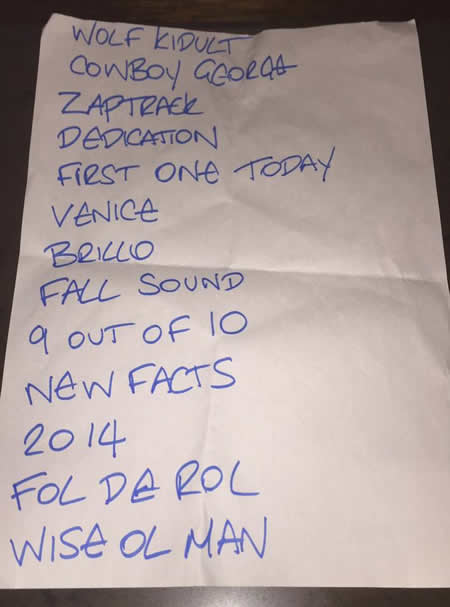 WOLF KIDULT
COWBOY GEORGE
ZAPTRACK
DEDICATION
FIRST ONE TODAY
VENICE
BRILLO
FALL SOUND
9 OUT OF 10
NEW FACTS
2014
FOL DE ROL
WISE OL MAN